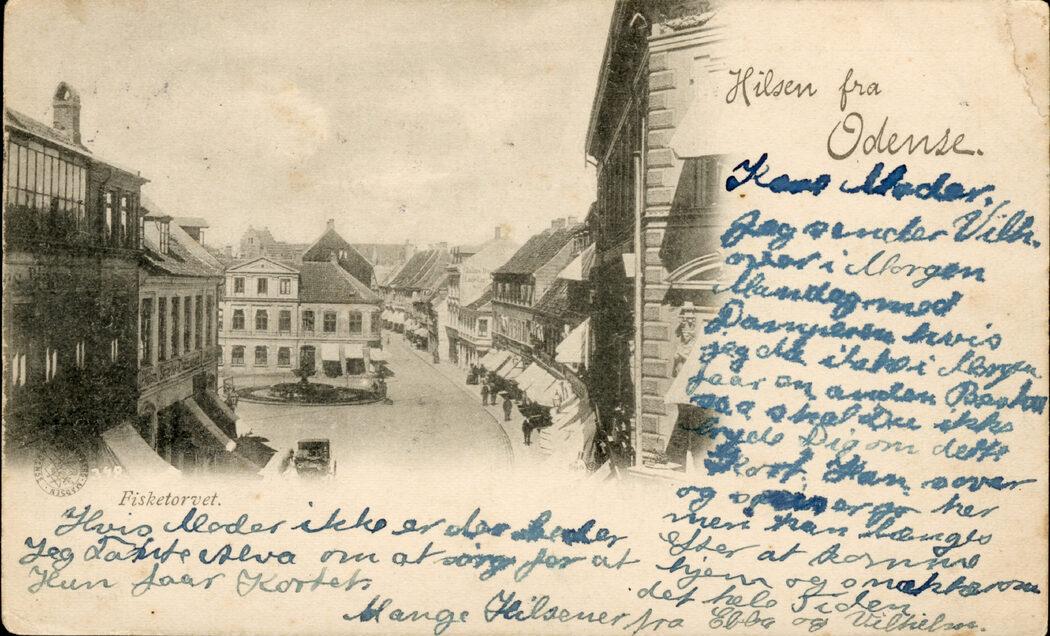 Hilsen fra
Odense.
Kære Moder,
Jeg sender Vilh.
over i Morgen
Mandag med
Damperen hvis
jeg da ikke i Morgen
faar en anden Besked
saa skal Du ikke
bryde Dig om dette
Kort. Han sover
og spiser go her
men han længes
efter at komme
hjem og snakker om
det hele Tiden
Fisketorvet.
Hvis Moder ikke er der beder
Jeg Tante Alva om at sørg for at
Hun faar Kortet.
Mange Hilsener fra Ebba og Vilhelm.